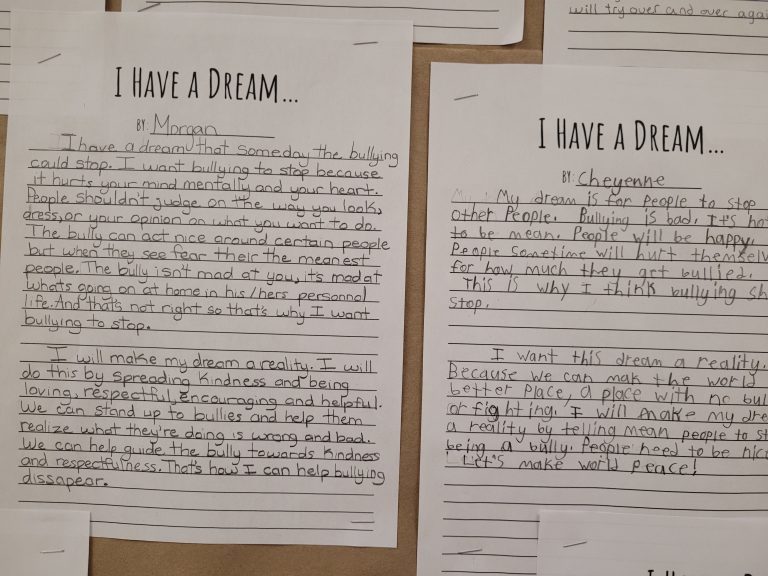 will try over and over agai
I HAVE A DREAM...
BY: Morgan
I have a dream that someday the bullying
could stop. I want bullying to stop because
it hurts your mind mentally and your heart.
People shouldn't judge on the way you look,
dress, or your opinion on what you want to do.
The bully can act nice around certain people
but when they see fear their the meanest
people. The bully isn't mad at you, its mad at
whats going on at home in his/hers personnol
life. And that's not right so that's why I want
bullying to stop.
I will make my dream a reality. I will
do this by spreading kindness and being
loving, respectful, encouraging and helpful.
We can stand up to bullies and help them
realize what they're doing is wrong and bad.
We can help guide the bully towards kindness
and respectfulness. That's how I can help bullying
dissapear.
I HAVE A DREAM...
BY: Cheyenne
My dream is for people to stop
other People. Bullying is bad. It's not
to be mean. People will be happy.
People sometime will hurt themselv
for how much they get bullied.
This is why I think bullying sh
stop.
I want this dream a reality.
Because we can mak the world
better place, a place with no bul
or fighting. I will make my dre
a reality by telling mean people to st
being a bully. People need to be nice
Let's make world peace!